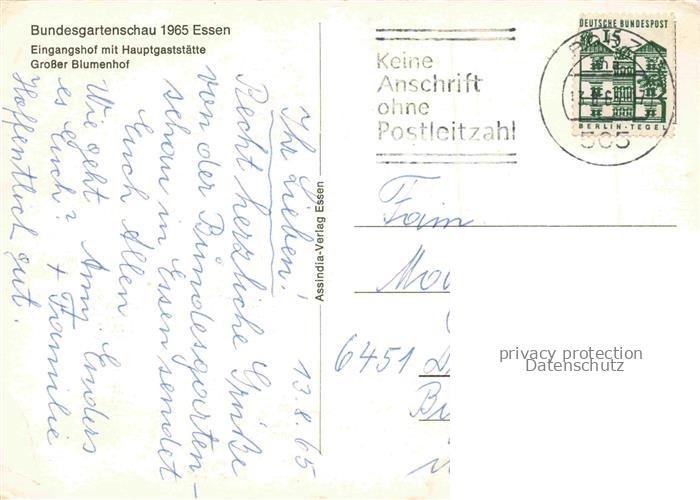 Bundesgartenschau 1965 Essen
Eingangshof mit Hauptgaststätte
Großer Blumenhof
13.8.65
Ihr Lieben!
Recht herzliche Grüße
von der Bundesgarten-
schau in Essen sendet
Euch Allen
Anni Enders
+ Familie
Wie geht
es Euch?
Hoffentlich gut.
Assindia-Verlag Essen
Keine
Anschrift
ohne
Postleitzahl
DEUTSCHE BUNDESPOST
15
BERLIN-TEGEL
505
Fam
6451
privacy protection
Datenschutz